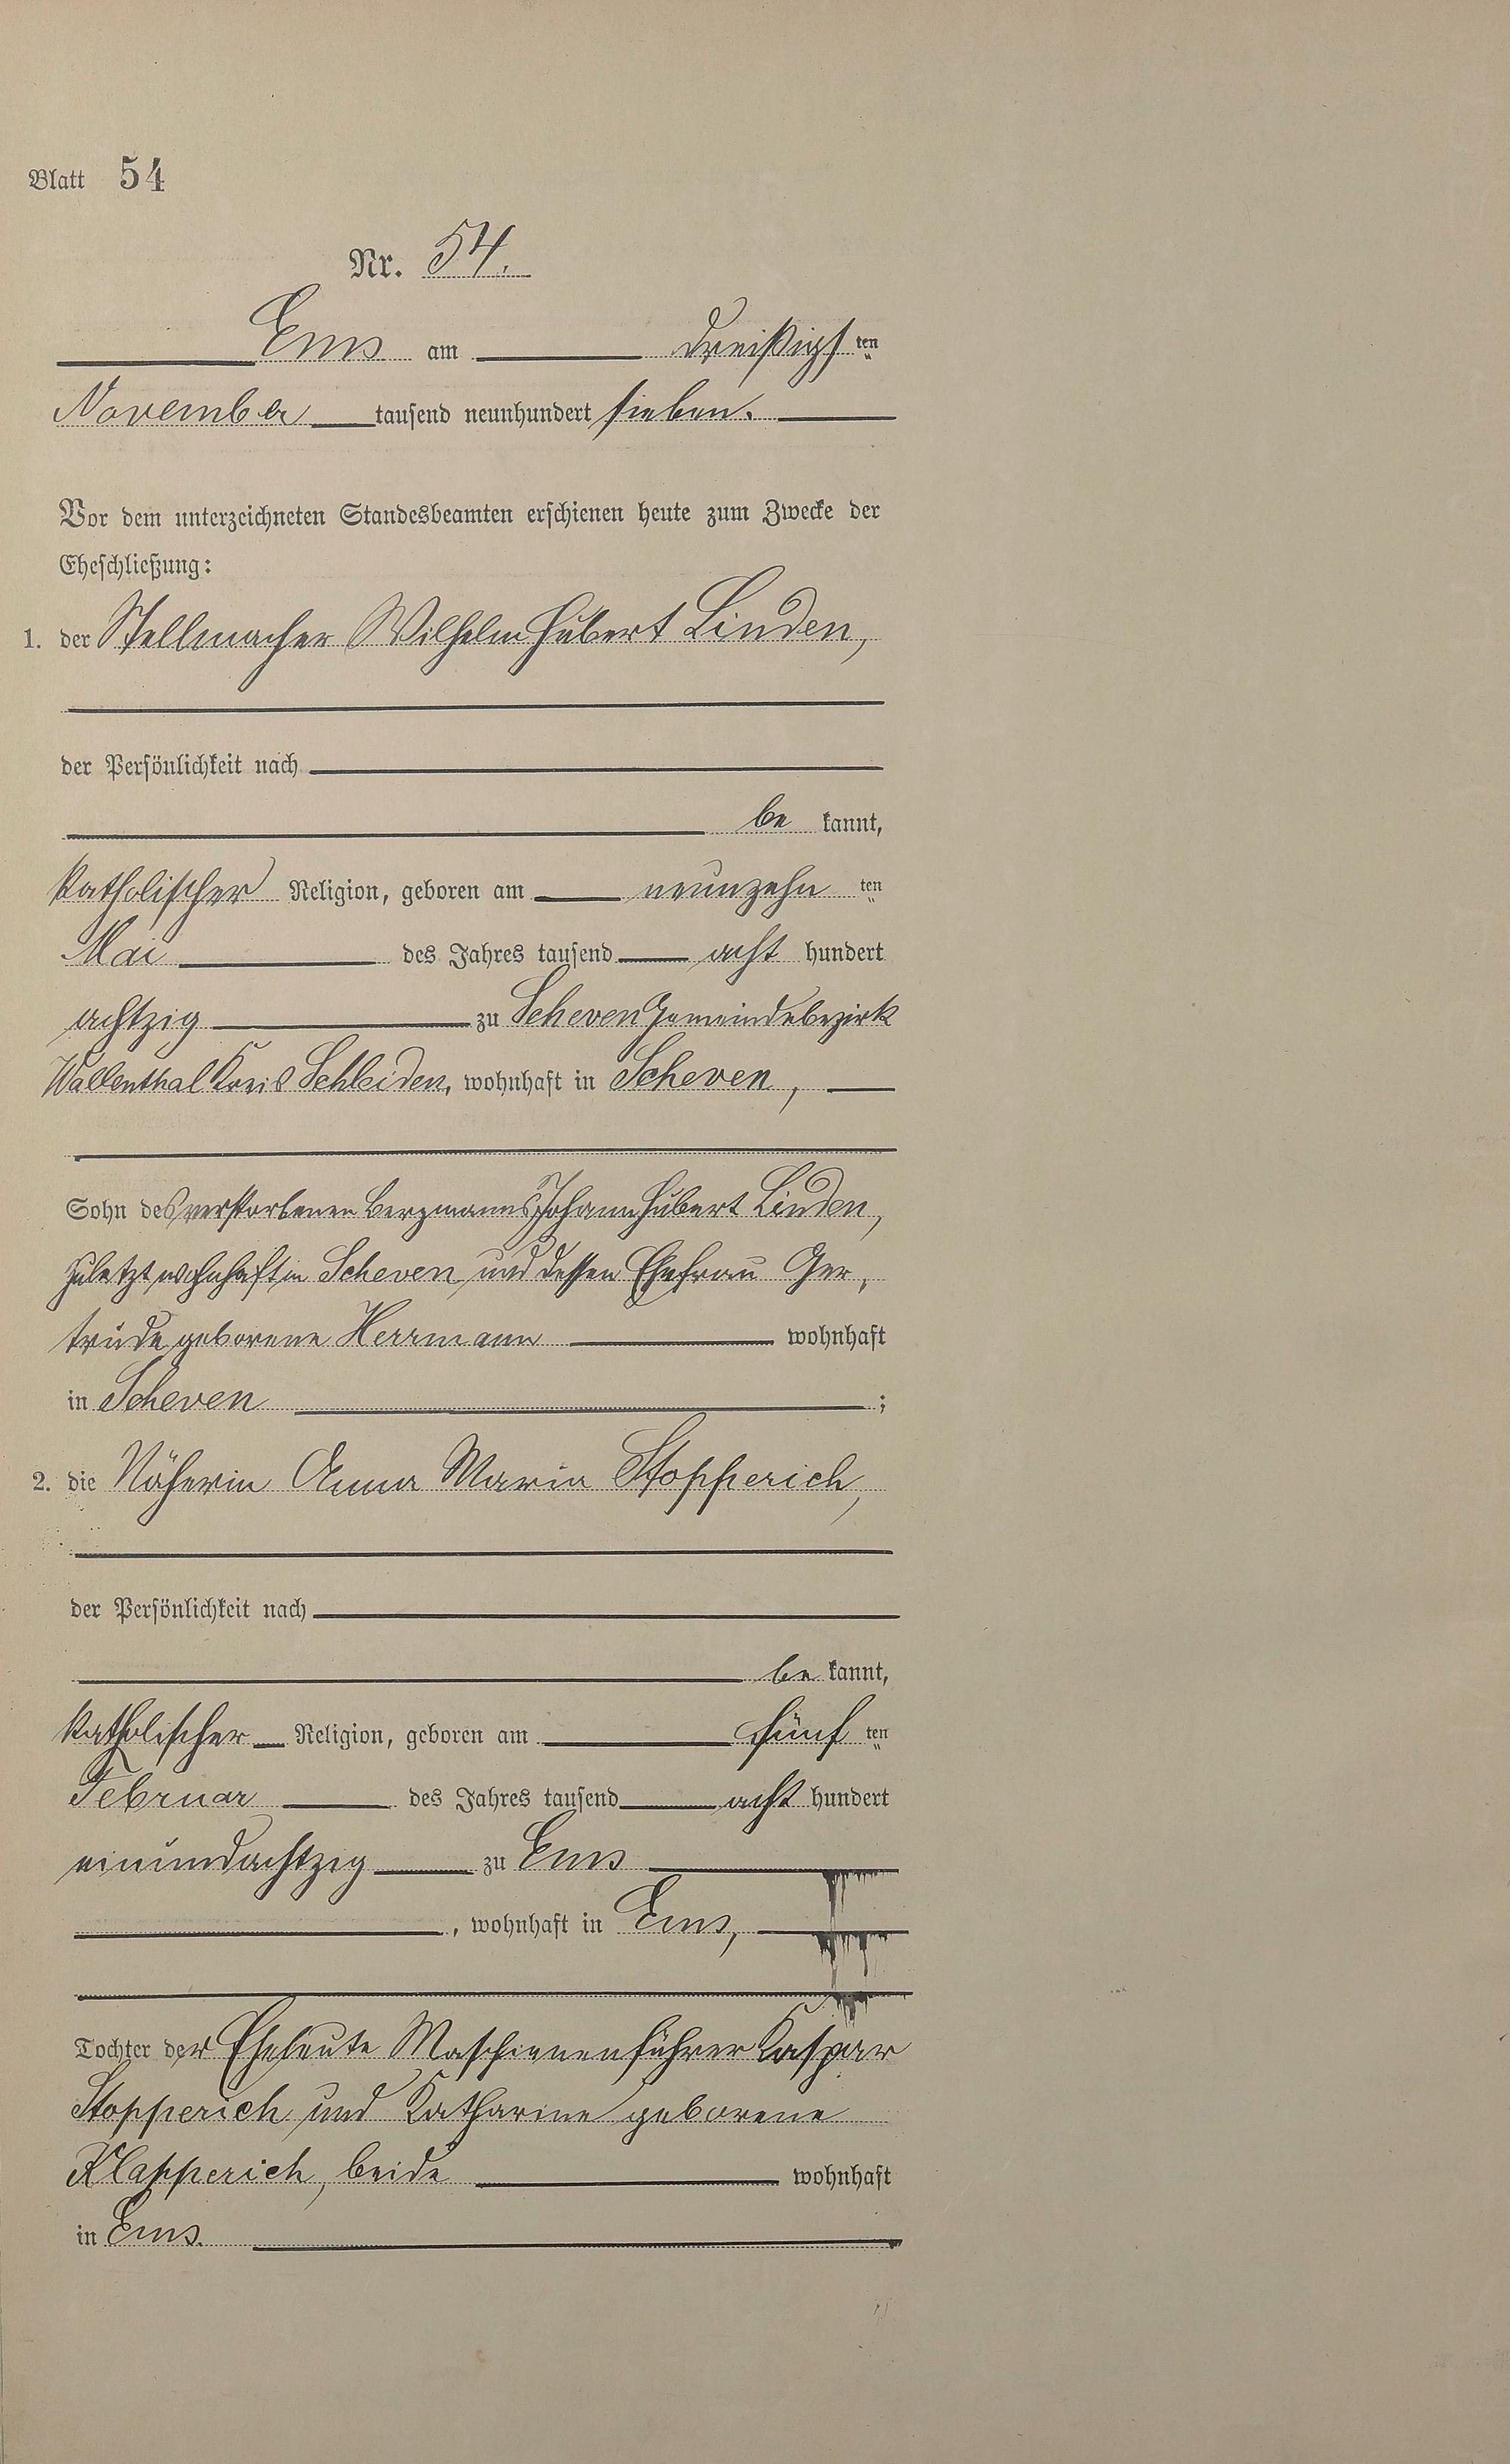 Blatt 54
Nr. 54.
Ems am dreißigsten
November tausend neunhundert sieben.
Vor dem unterzeichneten Standesbeamten erschienen heute zum Zwecke der
Eheschließung:
1. der Stellmacher Wilhelm Hubert Linden,
der Persönlichkeit nach
be kannt,
katholischer Religion, geboren am neunzehn ten
Mai des Jahres tausend acht hundert
achtzig zu Scheven Gemeindebezirk
Wallenthal Kreis Schleiden, wohnhaft in Scheven,
Sohn des verstorbenen Bergmanns Johann Hubert Linden,
zuletzt wohnhaft in Scheven und dessen Ehefrau Ger,
trude geborene Herrmann wohnhaft
in Scheven ;
2. die Näherin Anna Maria Stopperich,
der Persönlichkeit nach
be kannt,
katholischer Religion, geboren am fünf ten
Februar des Jahres tausend acht hundert
einundachtzig zu Ems
, wohnhaft in Ems,
Tochter der Eheleute Maschinenführer Kaspar
Stopperich und Katharine geborene
Klapperich, beide wohnhaft
in Ems.